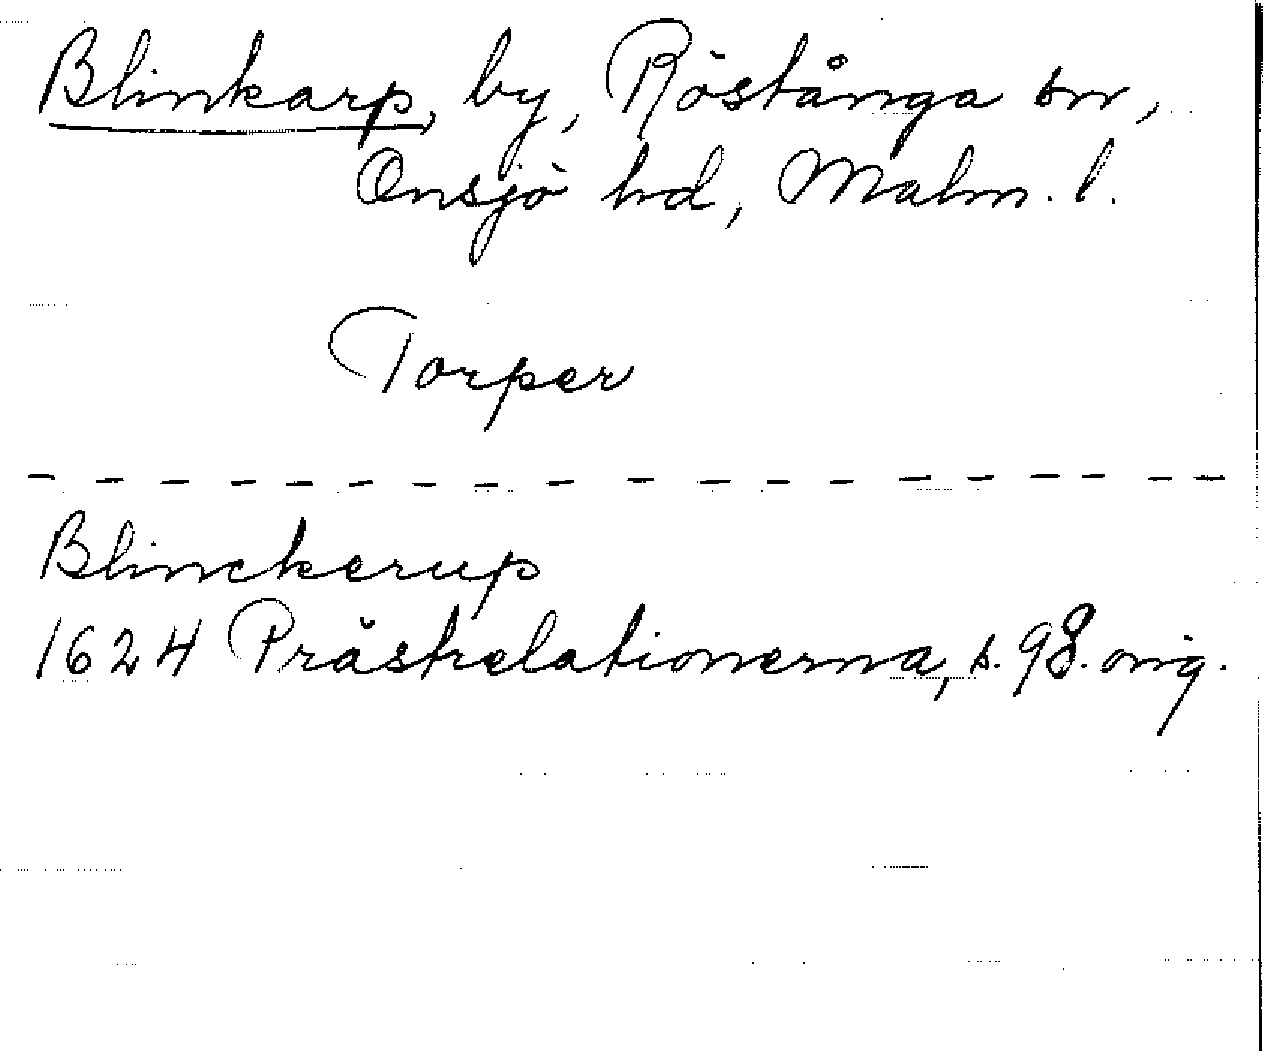 Blinkarp, by, Röstånga sn,
Onsjö hd, Malm. l.
Torper
Blinckerup
1624 Prästrelationerna, s. 98. orig.